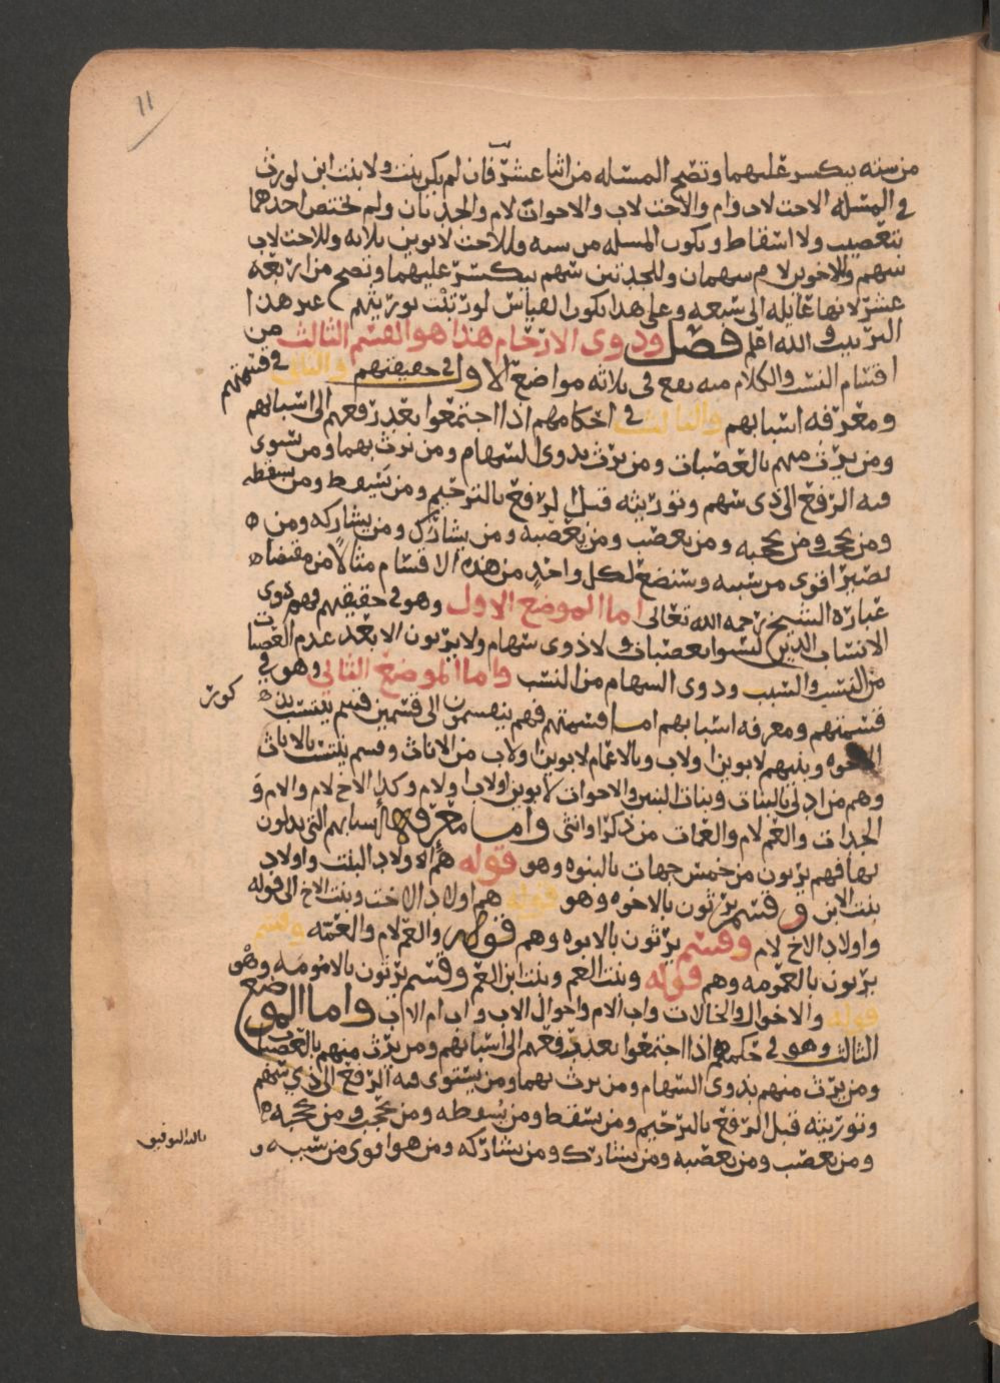 ١١
من سته ينكسر عليهما وتصح المسله من اثنا عشر فان لم يكن بنت ولا بنت ابن لورث
في المسله الاخت لاب وام والاخت لاب والاخوان لام والجدتان ولم تختص احدهما
بتعصيب ولا اسقاط ويكون المسله من سته وللاخت لابوين ثلاثه وللاخت لاب
سهم وللاخوين لام سهمان وللجدتين سهم ينكسر عليهما وتصح من اربعة
عشر لانها عايله الى سبعه وعلى هذا يكون القياس لو رتبت توريثهم غير هذا
الترتيب والله اعلم فصل وذوي الارحام هذا هو القسم الثالث من
اقسام النسب والكلام فيه يقع في ثلاثه مواضع الاول في حقيقتهم والثاني في قسمتهم
ومعرفه اسبابهم والثالث في احكامهم اذا اجتمعوا بعد رفعهم الى اسبابهم
ومن يرث منهم بالعصبات ومن يرث بذوي السهام ومن يرث بهما ومن يستوي
فيه الرفع الى ذي سهم وتوريثه قبل الرفع بالترحيم ومن يسقط ومن يسقطه
ومن يحجب ومن يحجبه ومن يعصب ومن يعصبه ومن يشارك ومن يشاركه ومن
يصير اقوى من سببه وسنضع لكل واحد من هذه الاقسام مثالا من مقتضا
عبارة الشيخ رحمه الله تعالى اما الموضع الاول وهو في حقيقتهم فهم ذوي
الانساب الذين ليسوا بعصبات ولا ذوي سهام ولا يرثون الا بعد عدم العصبات
من النسب والسبب وذوي السهام من النسب واما الموضع الثاني وهو في
قسمتهم ومعرفه اسبابهم اما قسمتهم فهم ينقسمون الى قسمين قسم ينتسب
كور
الاخوه وبنيهم لابوين او لاب وبالاعمام لابوين او لاب من الاناث وقسم ينتسب بالاناث
وهم من ادلى بالبنات وبنات البنين والاخوات لابوين او لاب او لام وكذا الاخ لام والام و
الجدات والعم لام والعمات من ذكر او انثى واما معرفة اسبابهم التي يدلون
بها فهم يرثون من خمس جهات بالبنوه وهو قوله هم اولاد البنت واولاد
بنت الابن وقسم يرثون بالاخوه وهو قوله هم اولاد الاخت وبنت الاخ الى قوله
واولاد الاخ لام وقسم يرثون بالابوه وهم قوله والعم لام والعمه وقسم
يرثون بالعمومه وهم قوله وبنت العم وبنت ابن العم وقسم يرثون بالامومه وهو
قوله والاخوال والخالات واب الام واخوال الاب واب ام الاب واما الموضع
الثالث وهو في حكمهم اذا اجتمعوا بعد رفعهم الى اسبابهم ومن يرث منهم بالعصبات
ومن يرث منهم بذوي السهام ومن يرث بهما ومن يستوي فيه الرفع الى ذي سهم
وتوريثه قبل الرفع بالترحيم ومن يسقط ومن يسقطه ومن يحجب ومن يحجبه
ومن يعصب ومن يعصبه ومن يشارك ومن يشاركه ومن هو اقوى من سببه و
بالله التوفيق